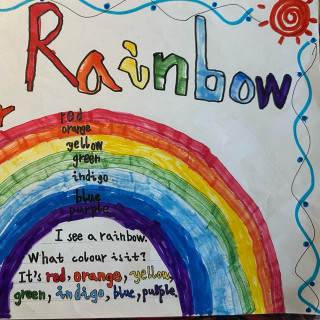 Rainbow
red
orange
yellow
green
indigo
blue
purple
I see a rainbow.
What colour is it?
It's red, orange, yellow,
green, indigo, blue, purple.